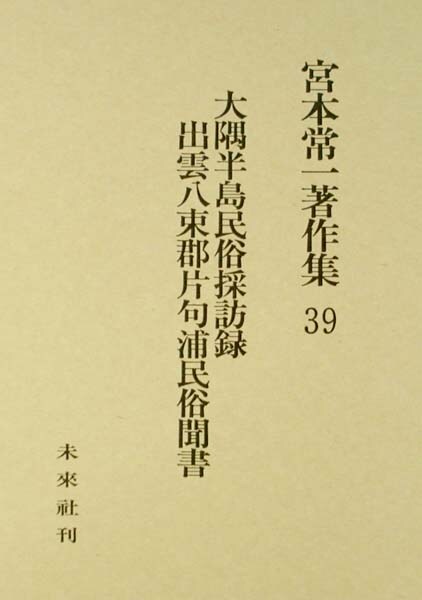 宮本常一著作集 39
大隅半島民俗採訪録
出雲八束郡片句浦民俗聞書
未來社刊